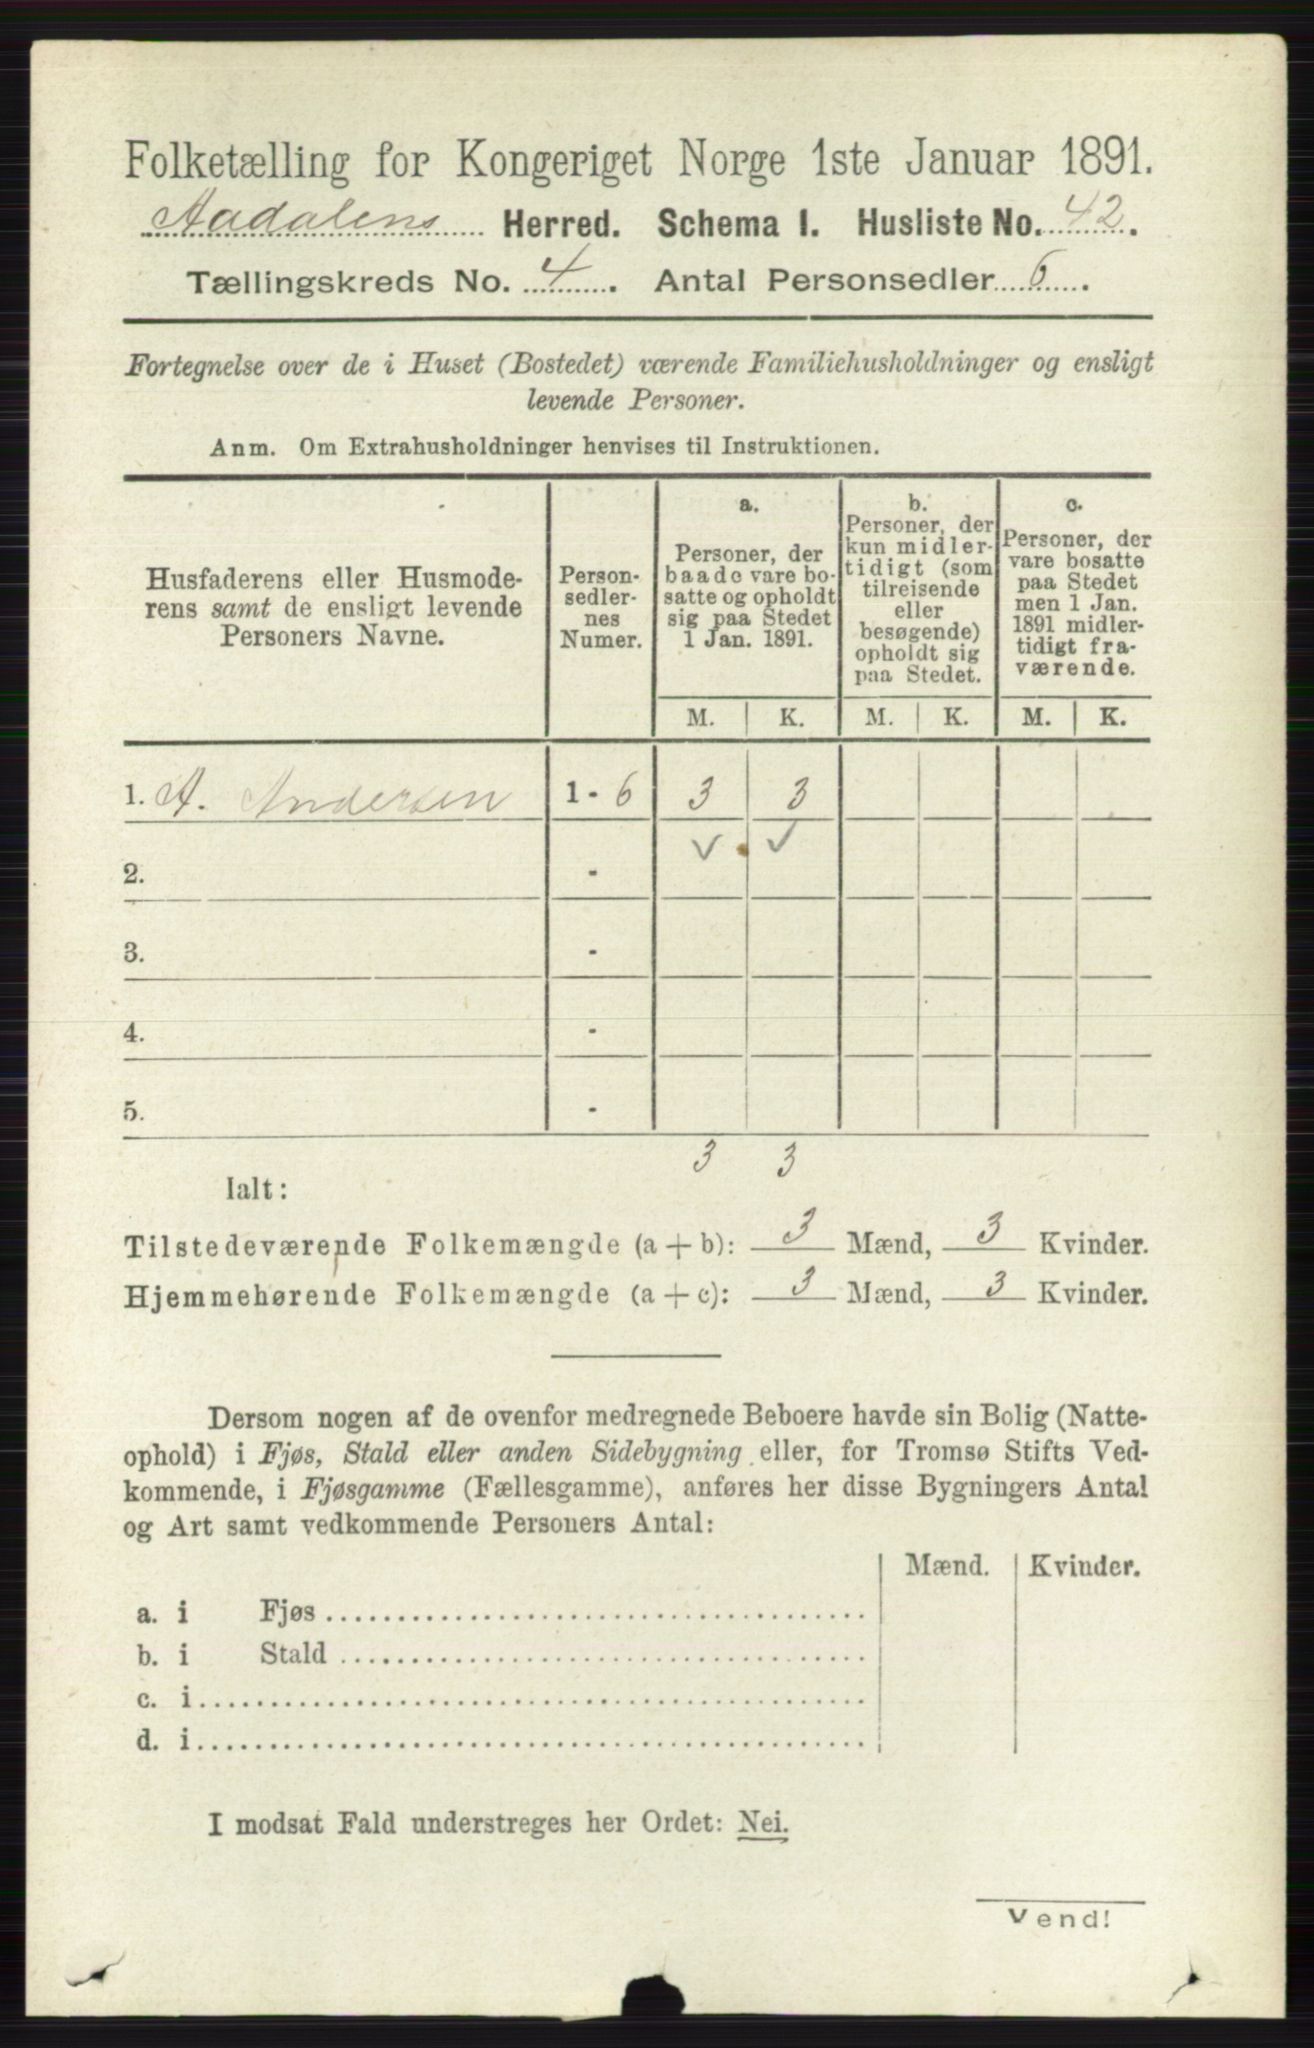 Folketælling for Kongeriget Norge 1ste Januar 1891.
Aadalens Herred. Schema I. Husliste No. 42.
Tællingskreds No. 4. Antal Personsedler 6.
Fortegnelse over de i Huset (Bostedet) værende Familiehusholdninger og ensligt
levende Personer.
Anm. Om Extrahusholdninger henvises til Instruktionen.
Husfaderens eller Husmode-
rens samt de ensligt levende
Personers Navne.
Person-
sedler-
nes
Numer.
a.
Personer, der
baade vare bo-
satte og opholdt
sig paa Stedet
1 Jan. 1891.
b.
Personer, der
kun midler-
tidigt (som
tilreisende
eller
besøgende)
opholdt sig
paa Stedet.
c.
Personer, der
vare bosatte
paa Stedet
men 1 Jan.
1891 midler-
tidigt fra-
værende.
M. K. M. K. M. K.
1. A. Andersen 1 - 6 3 3
2. -
3. -
4. -
5. -
3 3
Ialt:
Tilstedeværende Folkemængde (a + b): 3 Mænd, 3 Kvinder.
Hjemmehørende Folkemængde (a + c): 3 Mænd, 3 Kvinder.
Dersom nogen af de ovenfor medregnede Beboere havde sin Bolig (Natte-
ophold) i Fjøs, Stald eller anden Sidebygning eller, for Tromsø Stifts Ved-
kommende, i Fjøsgamme (Fællesgamme), anføres her disse Bygningers Antal
og Art samt vedkommende Personers Antal:
Mænd. Kvinder.
a. i Fjøs
b. i Stald
c. i
d. i
I modsat Fald understreges her Ordet: Nei.
Vend!